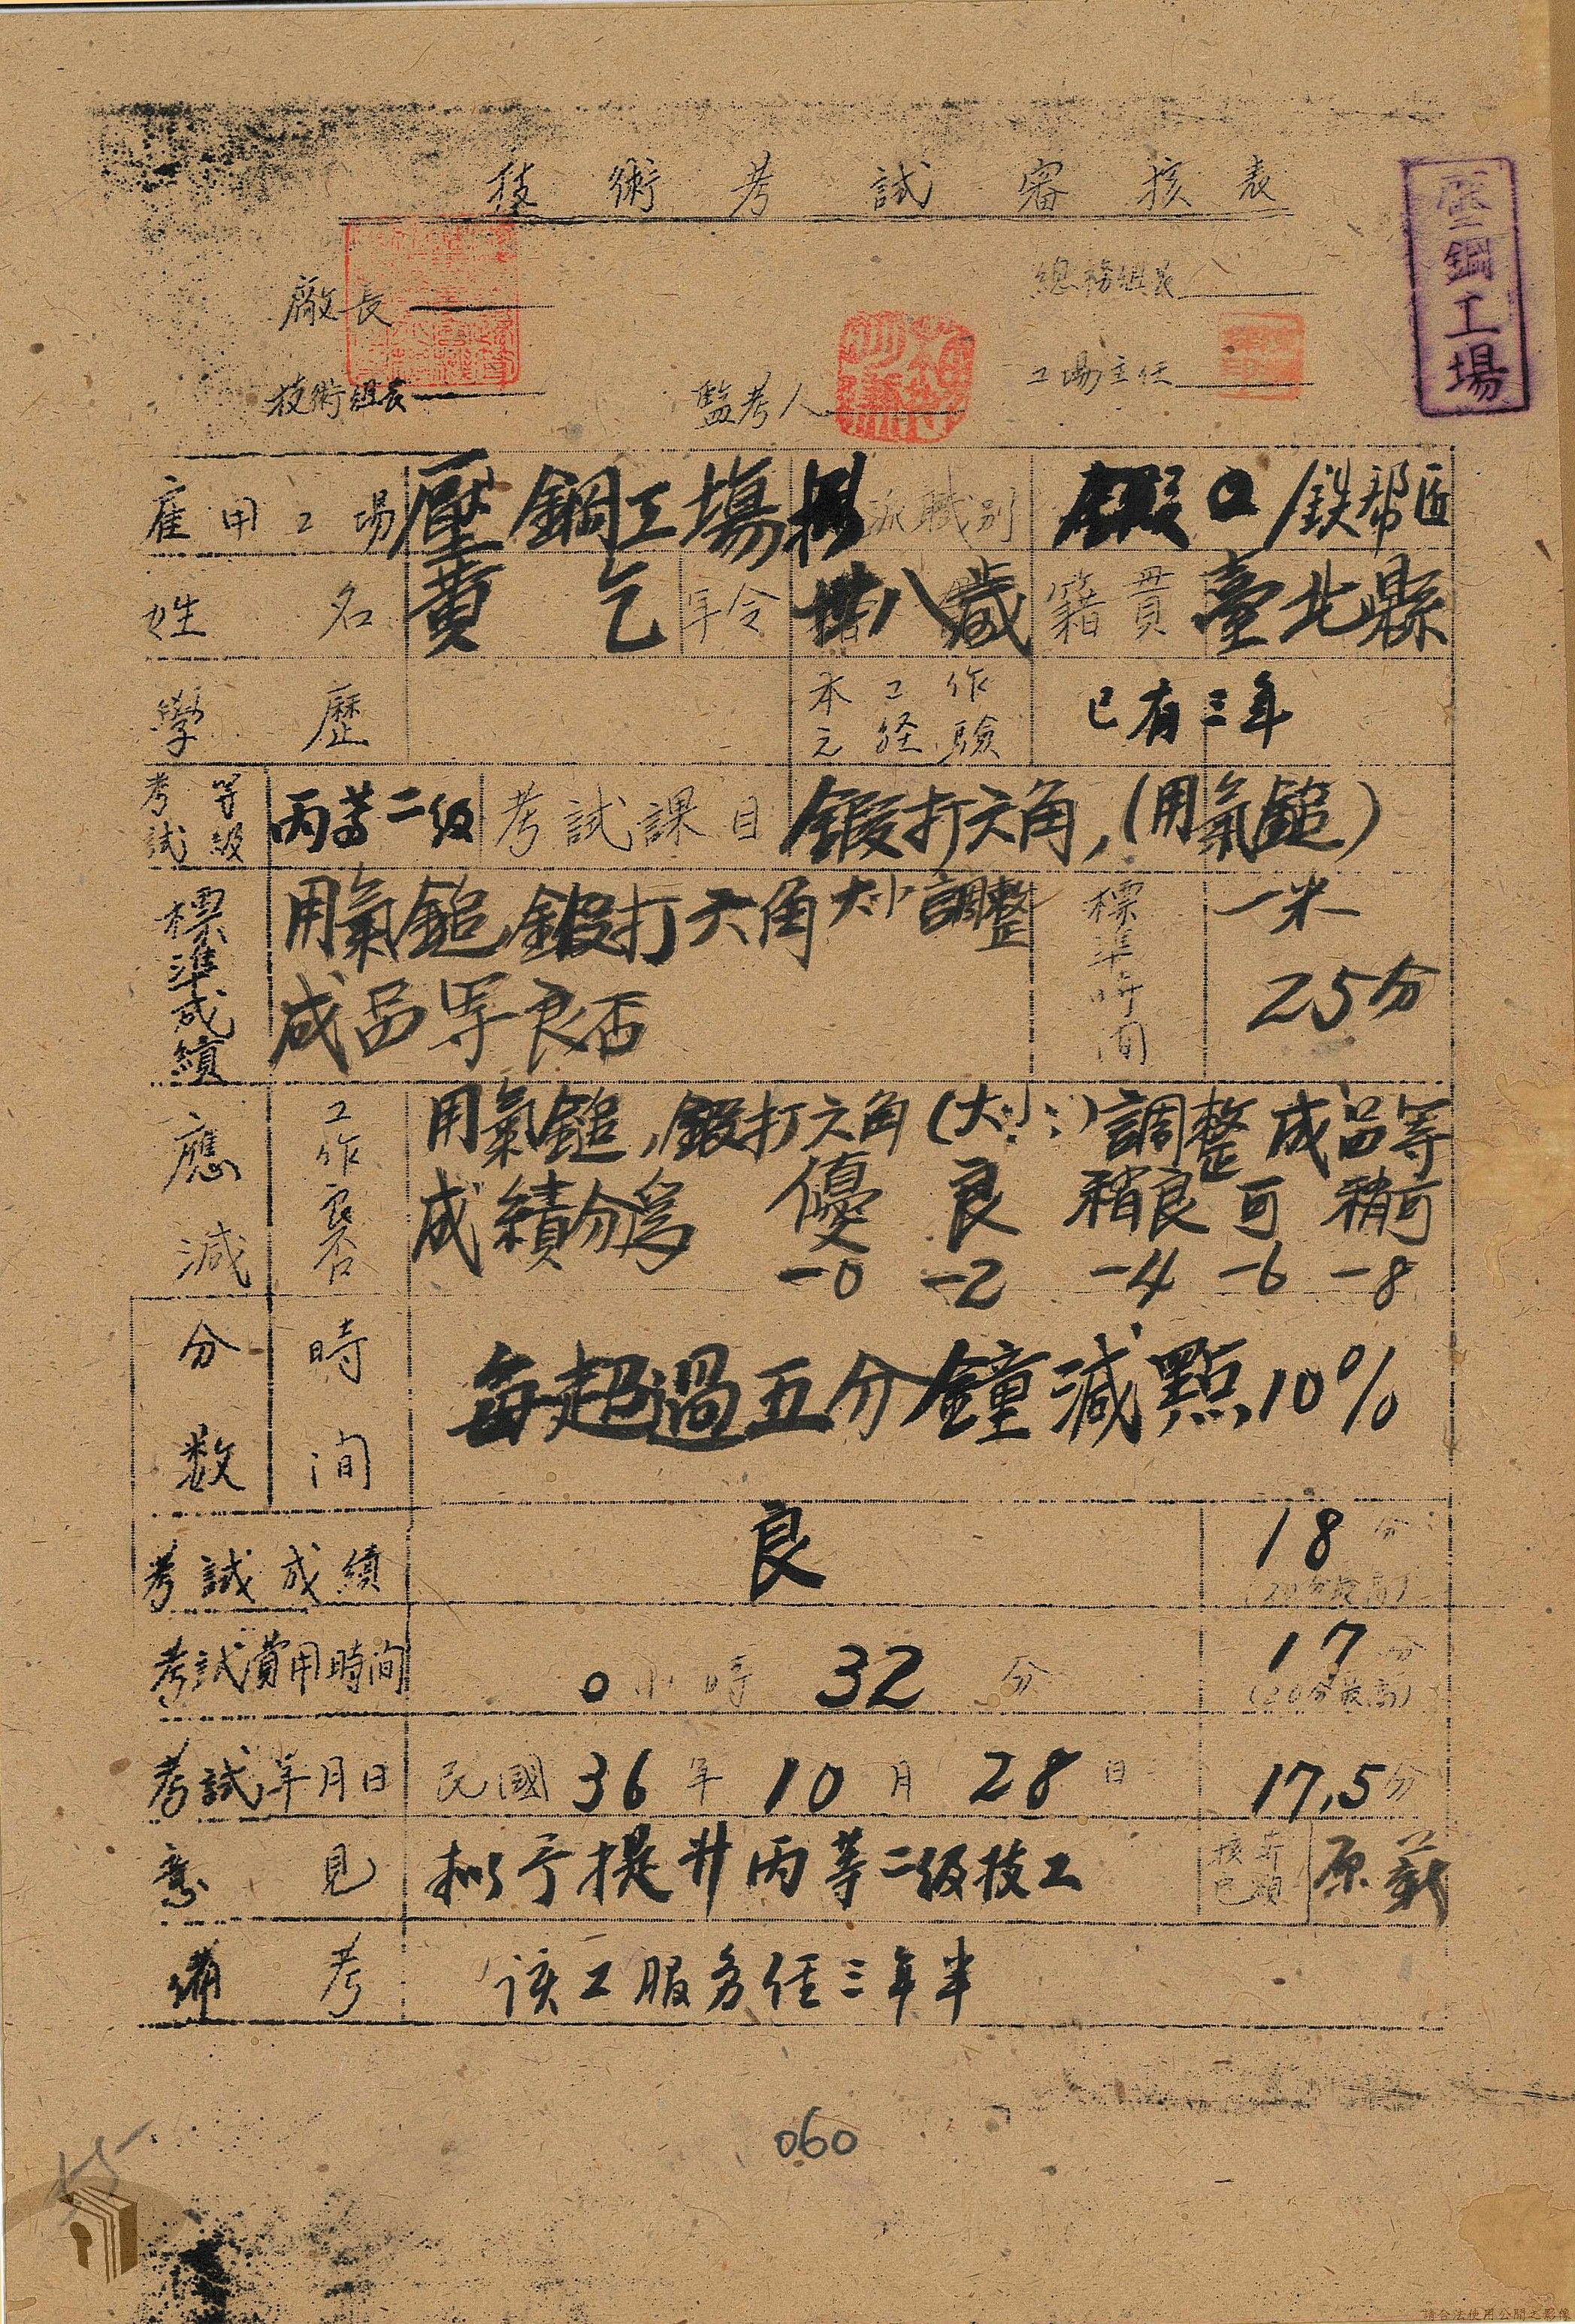 技術考試審核表
壓鋼工場
廠長
總務組長
技術組長
監考人
工場主任
雇用工場 壓鋼工場 派職別 鍛工 鉄帮匠
姓名 黄乞 年令 卅八歲 籍貫 臺北縣
學歷 本工作元経驗 已有三年
考試等級 丙等二級 考試課目 鍛打六角,(用氣鎚)
標準成績 用氣鎚,鍛打六角大小調整 標準時间 一米
成品等良否 25分
應減分数 工作良否 用氣鎚,鍛打六角(大小)調整成品等
成績分為 優 良 稍良 可 稍可
-0 -2 -4 -6 -8
時间 每超過五分鐘減點10%
考試成績 良 18分
(20分最高)
考試費用時间 0小時32分 17分
(20分最高)
考試年月日 民國36年10月28日 17.5分
意見 擬予提升丙等二級技工 原薪
備考 该工服务任三年半
060
15
請合法使用公開之影像